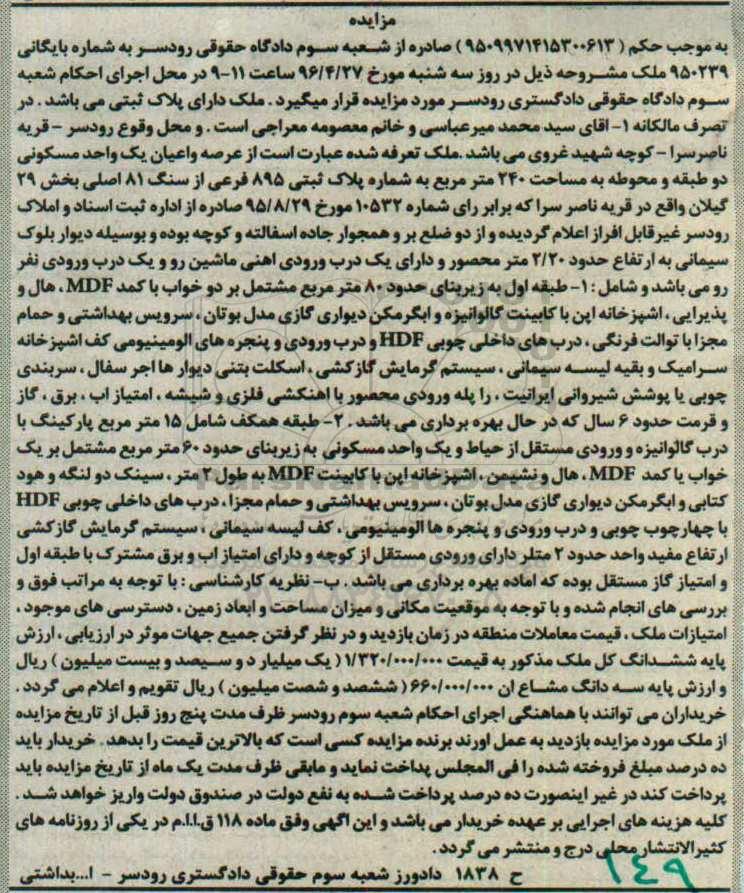 مزایده
به موجب حکم ( ۹۵۰۹۹۷۱۴۱۵۳۰۰۶۱۳ ) صادره از شعبه سوم دادگاه حقوقی رودسر به شماره بایگانی
۹۵۰۲۳۹ ملک مشروحه ذیل در روز سه شنبه مورخ ۹۶/۴/۲۷ ساعت ۱۱-۹ در محل اجرای احکام شعبه
سوم دادگاه حقوقی دادگستری رودسر مورد مزایده قرار میگیرد . ملک دارای پلاک ثبتی می باشد . در
تصرف مالکانه ۱- اقای سید محمد میرعباسی و خانم معصومه معراجی است . و محل وقوع رودسر - قریه
ناصرسرا - کوچه شهید غروی می باشد .ملک تعرفه شده عبارت است از عرصه واعیان یک واحد مسکونی
دو طبقه و محوطه به مساحت ۲۴۰ متر مربع به شماره پلاک ثبتی ۸۹۵ فرعی از سنگ ۸۱ اصلی بخش ۲۹
گیلان واقع در قریه ناصر سرا که برابر رای شماره ۱۰۵۳۲ مورخ ۹۵/۸/۲۹ صادره از اداره ثبت اسناد و املاک
رودسر غیرقابل افراز اعلام گردیده و از دو ضلع بر و همجوار جاده اسفالته و کوچه بوده و بوسیله دیوار بلوک
سیمانی به ارتفاع حدود ۲/۲۰ متر محصور و دارای یک درب ورودی اهنی ماشین رو و یک درب ورودی نفر
رو می باشد و شامل : ۱- طبقه اول به زیربنای حدود ۸۰ متر مربع مشتمل بر دو خواب با کمد MDF ، هال و
پذیرایی ، اشپزخانه اپن با کابینت گالوانیزه و ابگرمکن دیواری گازی مدل بوتان ، سرویس بهداشتی و حمام
مجزا با توالت فرنگی ، درب های داخلی چوبی HDF و درب ورودی و پنجره های الومینیومی کف اشپزخانه
سرامیک و بقیه لیسه سیمانی ، سیستم گرمایش گازکشی ، اسکلت بتنی دیوار ها اجر سفال ، سربندی
چوبی یا پوشش شیروانی ایرانیت ، را پله ورودی محصور با اهنکشی فلزی و شیشه ، امتیاز اب ، برق ، گاز
و قرمت حدود ۶ سال که در حال بهره برداری می باشد . ۲- طبقه همکف شامل ۱۵ متر مربع پارکینگ با
درب گالوانیزه و ورودی مستقل از حیاط و یک واحد مسکونی به زیربنای حدود ۶۰ متر مربع مشتمل بر یک
خواب یا کمد MDF ، هال و نشیمن ، اشپزخانه اپن با کابینت MDF به طول ۲ متر ، سینک دو لنگه و هود
کتابی و ابگرمکن دیواری گازی مدل بوتان ، سرویس بهداشتی و حمام مجزا ، درب های داخلی چوبی HDF
با چهارچوب چوبی و درب ورودی و پنجره ها الومینیومی ، کف لیسه سیمانی ، سیستم گرمایش گازکشی
ارتفاع مفید واحد حدود ۲ متلر دارای ورودی مستقل از کوچه و دارای امتیاز اب و برق مشترک با طبقه اول
و امتیاز گاز مستقل بوده که اماده بهره برداری می باشد . ب- نظریه کارشناسی : با توجه به مراتب فوق و
بررسی های انجام شده و با توجه به موقعیت مکانی و میزان مساحت و ابعاد زمین ، دسترسی های موجود ،
امتیازات ملک ، قیمت معاملات منطقه در زمان بازدید و در نظر گرفتن جمیع جهات موثر در ارزیابی ، ارزش
پایه ششدانگ کل ملک مذکور به قیمت ۱/۳۲۰/۰۰۰/۰۰۰ ( یک میلیار د و سیصد و بیست میلیون ) ریال
و ارزش پایه سه دانگ مشاع ان ۶۶۰/۰۰۰/۰۰۰ ( ششصد و شصت میلیون ) ریال تقویم و اعلام می گردد .
خریداران می توانند با هماهنگی اجرای احکام شعبه سوم رودسر ظرف مدت پنج روز قبل از تاریخ مزایده
از ملک مورد مزایده بازدید به عمل اورند برنده مزایده کسی است که بالاترین قیمت را بدهد . خریدار باید
ده درصد مبلغ فروخته شده را فی المجلس پداخت نماید و مابقی ظرف مدت یک ماه از تاریخ مزایده باید
پرداخت کند در غیر اینصورت ده درصد پرداخت شده به نفع دولت در صندوق دولت واریز خواهد شد .
کلیه هزینه های اجرایی بر عهده خریدار می باشد و این اگهی وفق ماده ۱۱۸ ق.ا.ا.م در یکی از روزنامه های
کثیرالانتشار محلی درج و منتشر می گردد .
ح ۱۸۳۸ دادورز شعبه سوم حقوقی دادگستری رودسر - ا...بداشتی
۱۴۹